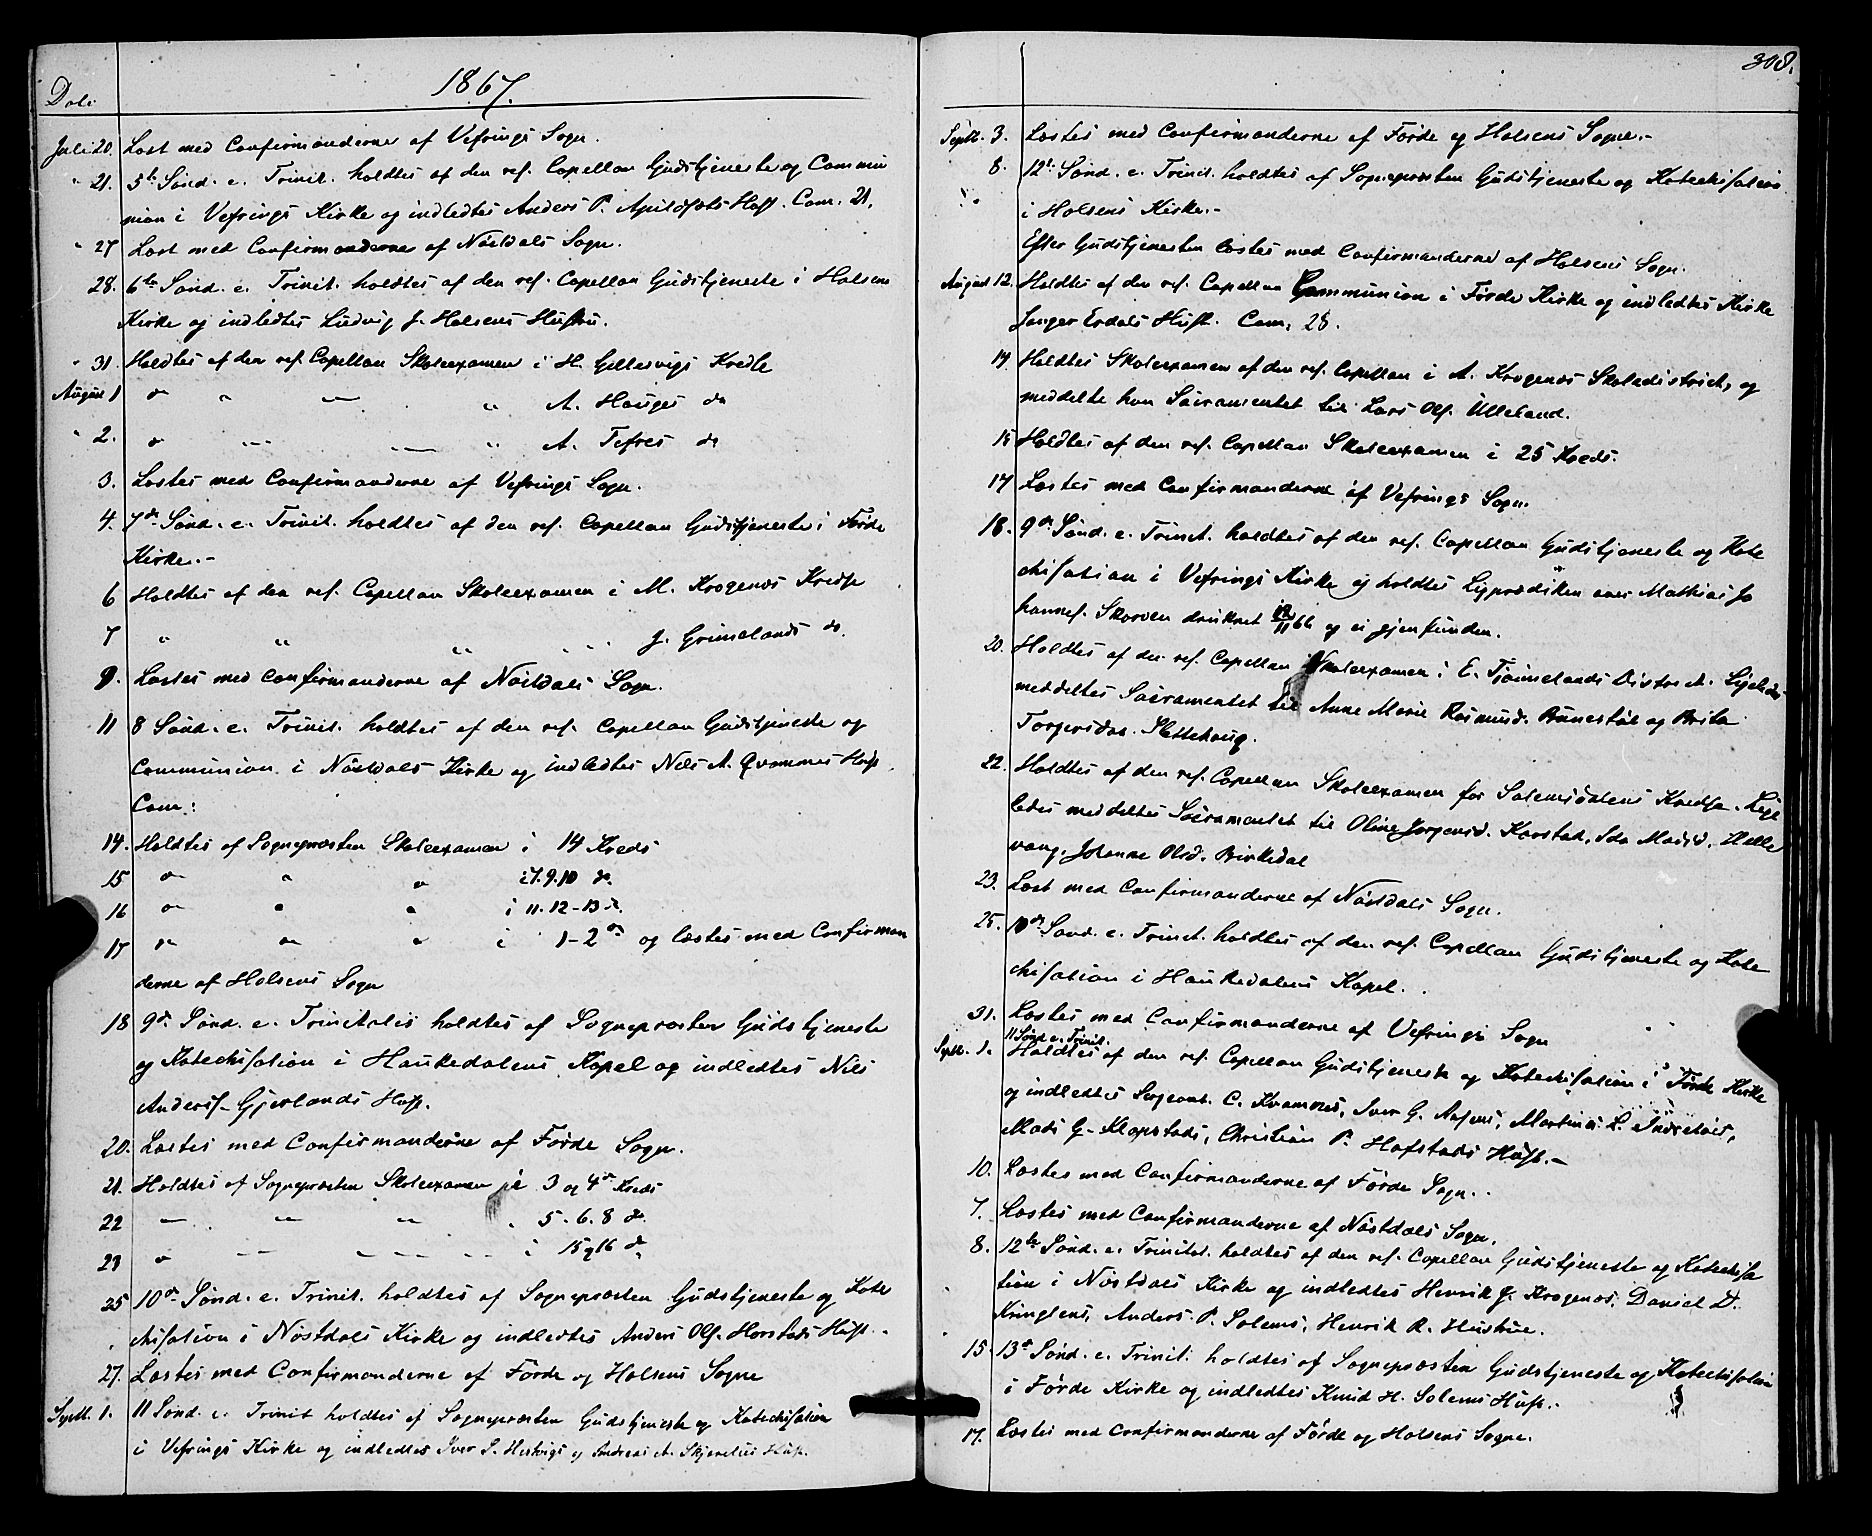 1867.
Dato
Juli 20. Læst med Confirmanderne af Vefrings Sogn.
" 21. 5te Sønd. e. Trinit. holdtes af den res. Capellan Gudstjeneste og Commu
nion i Vefrings Kirke og indledtes Anders P. Hust. Com. 21.
" 27 Læst med Confirmanderne af Nøstdals Sogn.
28. 6te Sønd. e. Trinit. holdtes af den res. Capellan Gudstjeneste i Holsens
Kirke og indledtes Ludvig J. Holsens Hustru.
" 31. Holdtes af den res. Capellan Skoleexamen i H. Kreds
August 1 do " — " A. Hauges do
" 2. do " — " A. Tefres do
3. Læstes med Confirmanderne af Vefrings Sogn.
4. 7de Sønd. e. Trinit. holdtes af den res. Capellan Gudstjeneste i Førde
Kirke.-
6 Holdtes af den res. Capellan Skoleexamen i M. Krogenæs Kreds
7 " " " " J. Grimelands do
9. Læstes med Confirmanderne af Nøstdals Sogn.
11 8 Sønd. e. Trinit. holdtes af den res. Capellan Gudstjeneste og
Communion i Nøstdals Kirke og indledtes Nils A. Qvammes Hust.
Com:
14. Holdtes af Sognepræsten Skoleexamen i 14 Kreds
15 do " do i 7. 9. 10 do.
16 do " " i 11. 12-13 do.
17 do do " i 1-2 do og læstes med Confirman
derne af Holsens Sogn
18 9de Sønd. e. Trinitatis holdtes af Sognepræsten Gudstjeneste
og Katechisation i Haukedalens Kapel og indledtes Nils
Anders. Gjerlands Hust.
20. Læstes med Confirmanderne af Førde Sogn.
21. Holdtes af Sognepræsten Skoleexamen i 3 og 4de Kreds
22 — " " . 5. 6. 8 do
23 do — — i 15 og 16 do
25 10de Sønd. e. Trinit. holdtes af Sognepræsten Gudstjeneste og Kate
chisation i Nøstdals Kirke og indledtes Anders Ols. Horstads Hust.
27. Læstes med Confirmanderne af Førde og Holsens Sogne
Septb. 1. 11 Sønd. e. Trinit holdtes af Sognepræsten Gudstjeneste og Katechisation
i Vefrings Kirke og indledtes Iver S. og Andreas A. Hust.
308.
Septb. 3. Læstes med Confirmanderne af Førde og Holsens Sogne.-
8. 12te Sønd. e. Trinit. holdtes af Sognepræsten Gudstjeneste og Katechisation
i Holsens Kirke.-
Efter Gudstjenesten læstes med Confirmanderne af Holsens Sogn.
August 12. Holdtes af den res. Capellan Communion i Førde Kirke og indledtes Kirke
sanger Erdals Hust. Com. 28.
14 Holdtes Skoleexamen af den res. Capellan i A. Krogenæs Skoledistrict, og
meddelte han Sacramentet til Lars Ols. Ulleland.
15 Holdtes af den res. Capellan Skoleexamen i 25 Kreds.
17 Læstes med Confirmanderne af Vefrings Sogn.
18. 9de Sønd. e. Trinit. holdtes af den res. Capellan Gudstjeneste og Kate
chisation i Vefrings Kirke og holdtes Ligprædiken over Mathias Jo
hannes. Skorven druknet 12/11 66 og ei gjenfunden.
20. Holdtes af den res. Capellan Skoleexamen i E. Tjømelands District. Ligeledes
meddeltes Sacramentet til Anne Marie Rasmusd. Bunestøl og Brita
Torgersdtr. Slettehaug.
22. Holdtes af den res. Capellan Skoleexamen for Solemsdalens Kreds. Lige
ledes meddeltes Sacramentet til Oline Jørgensd. Karstad, Ida Madsd. Helle
vang. Johanne Olsd. Birkedal
23. Læst med Confirmanderne af Nøstdals Sogn.
25. 10de Sønd. e. Trinit. holdtes af den res. Capellan Gudstjeneste og Kate
chisation i Haukedalens Kapel.
31. Læstes med Confirmanderne af Vefrings Sogn
11 Sønd e. Trinit.
Septb. 1. Holdtes af den res. Capellan Gudstjeneste og Katechisation i Førde Kirke
og indledtes Sergeant C. Kvamnes, Iver G. Aasens, Martinus L.
Mads G. Klopstads, Christian P. Hafstads Hust.-
10. Læstes med Confirmanderne af Førde Sogn.
7. Læstes med Confirmanderne af Nøstdals Sogn.
8. 12te Sønd. e. Trinitat. holdtes af den res. Capellan Gudstjeneste og Katechisa
tion i Nøstdals Kirke og indledtes Henrik J. Krogenæs, Daniel D.
Kringlens, Anders P. Solems, Henrik R. Hustrue.
15. 13de Sønd. e. Trinit. holdtes af Sognepræsten Gudstjeneste og Katechisation
i Førde Kirke og indledtes Knud H. Solems Hust.
17. Læstes med Confirmanderne af Førde og Holsens Sogne.